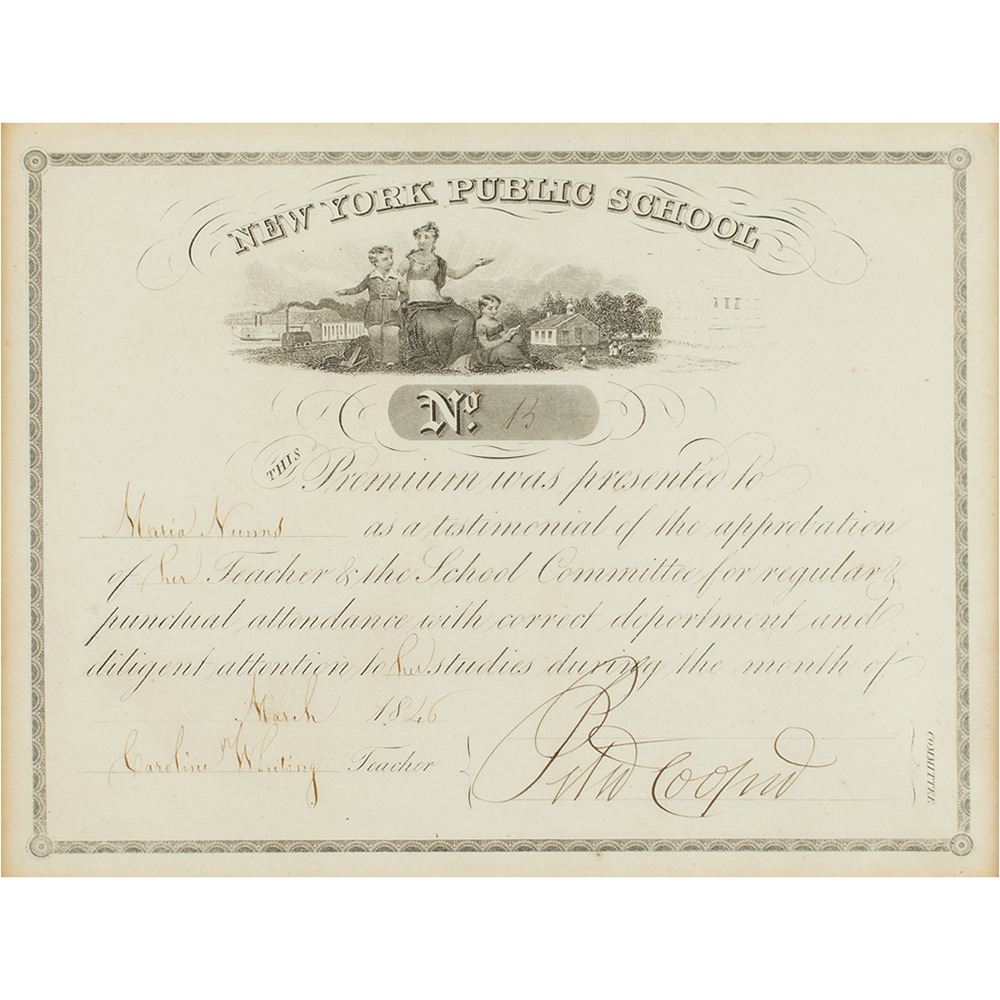 NEW YORK PUBLIC SCHOOL
No. 15
THIS Premium was presented to
Maria Nunns as a testimonial of the approbation
of her Teacher & the School Committee for regular &
punctual attendance with correct deportment and
diligent attention to her studies during the month of
March 1846
Caroline M Whiting Teacher
Peter Cooper
COMMITTEE